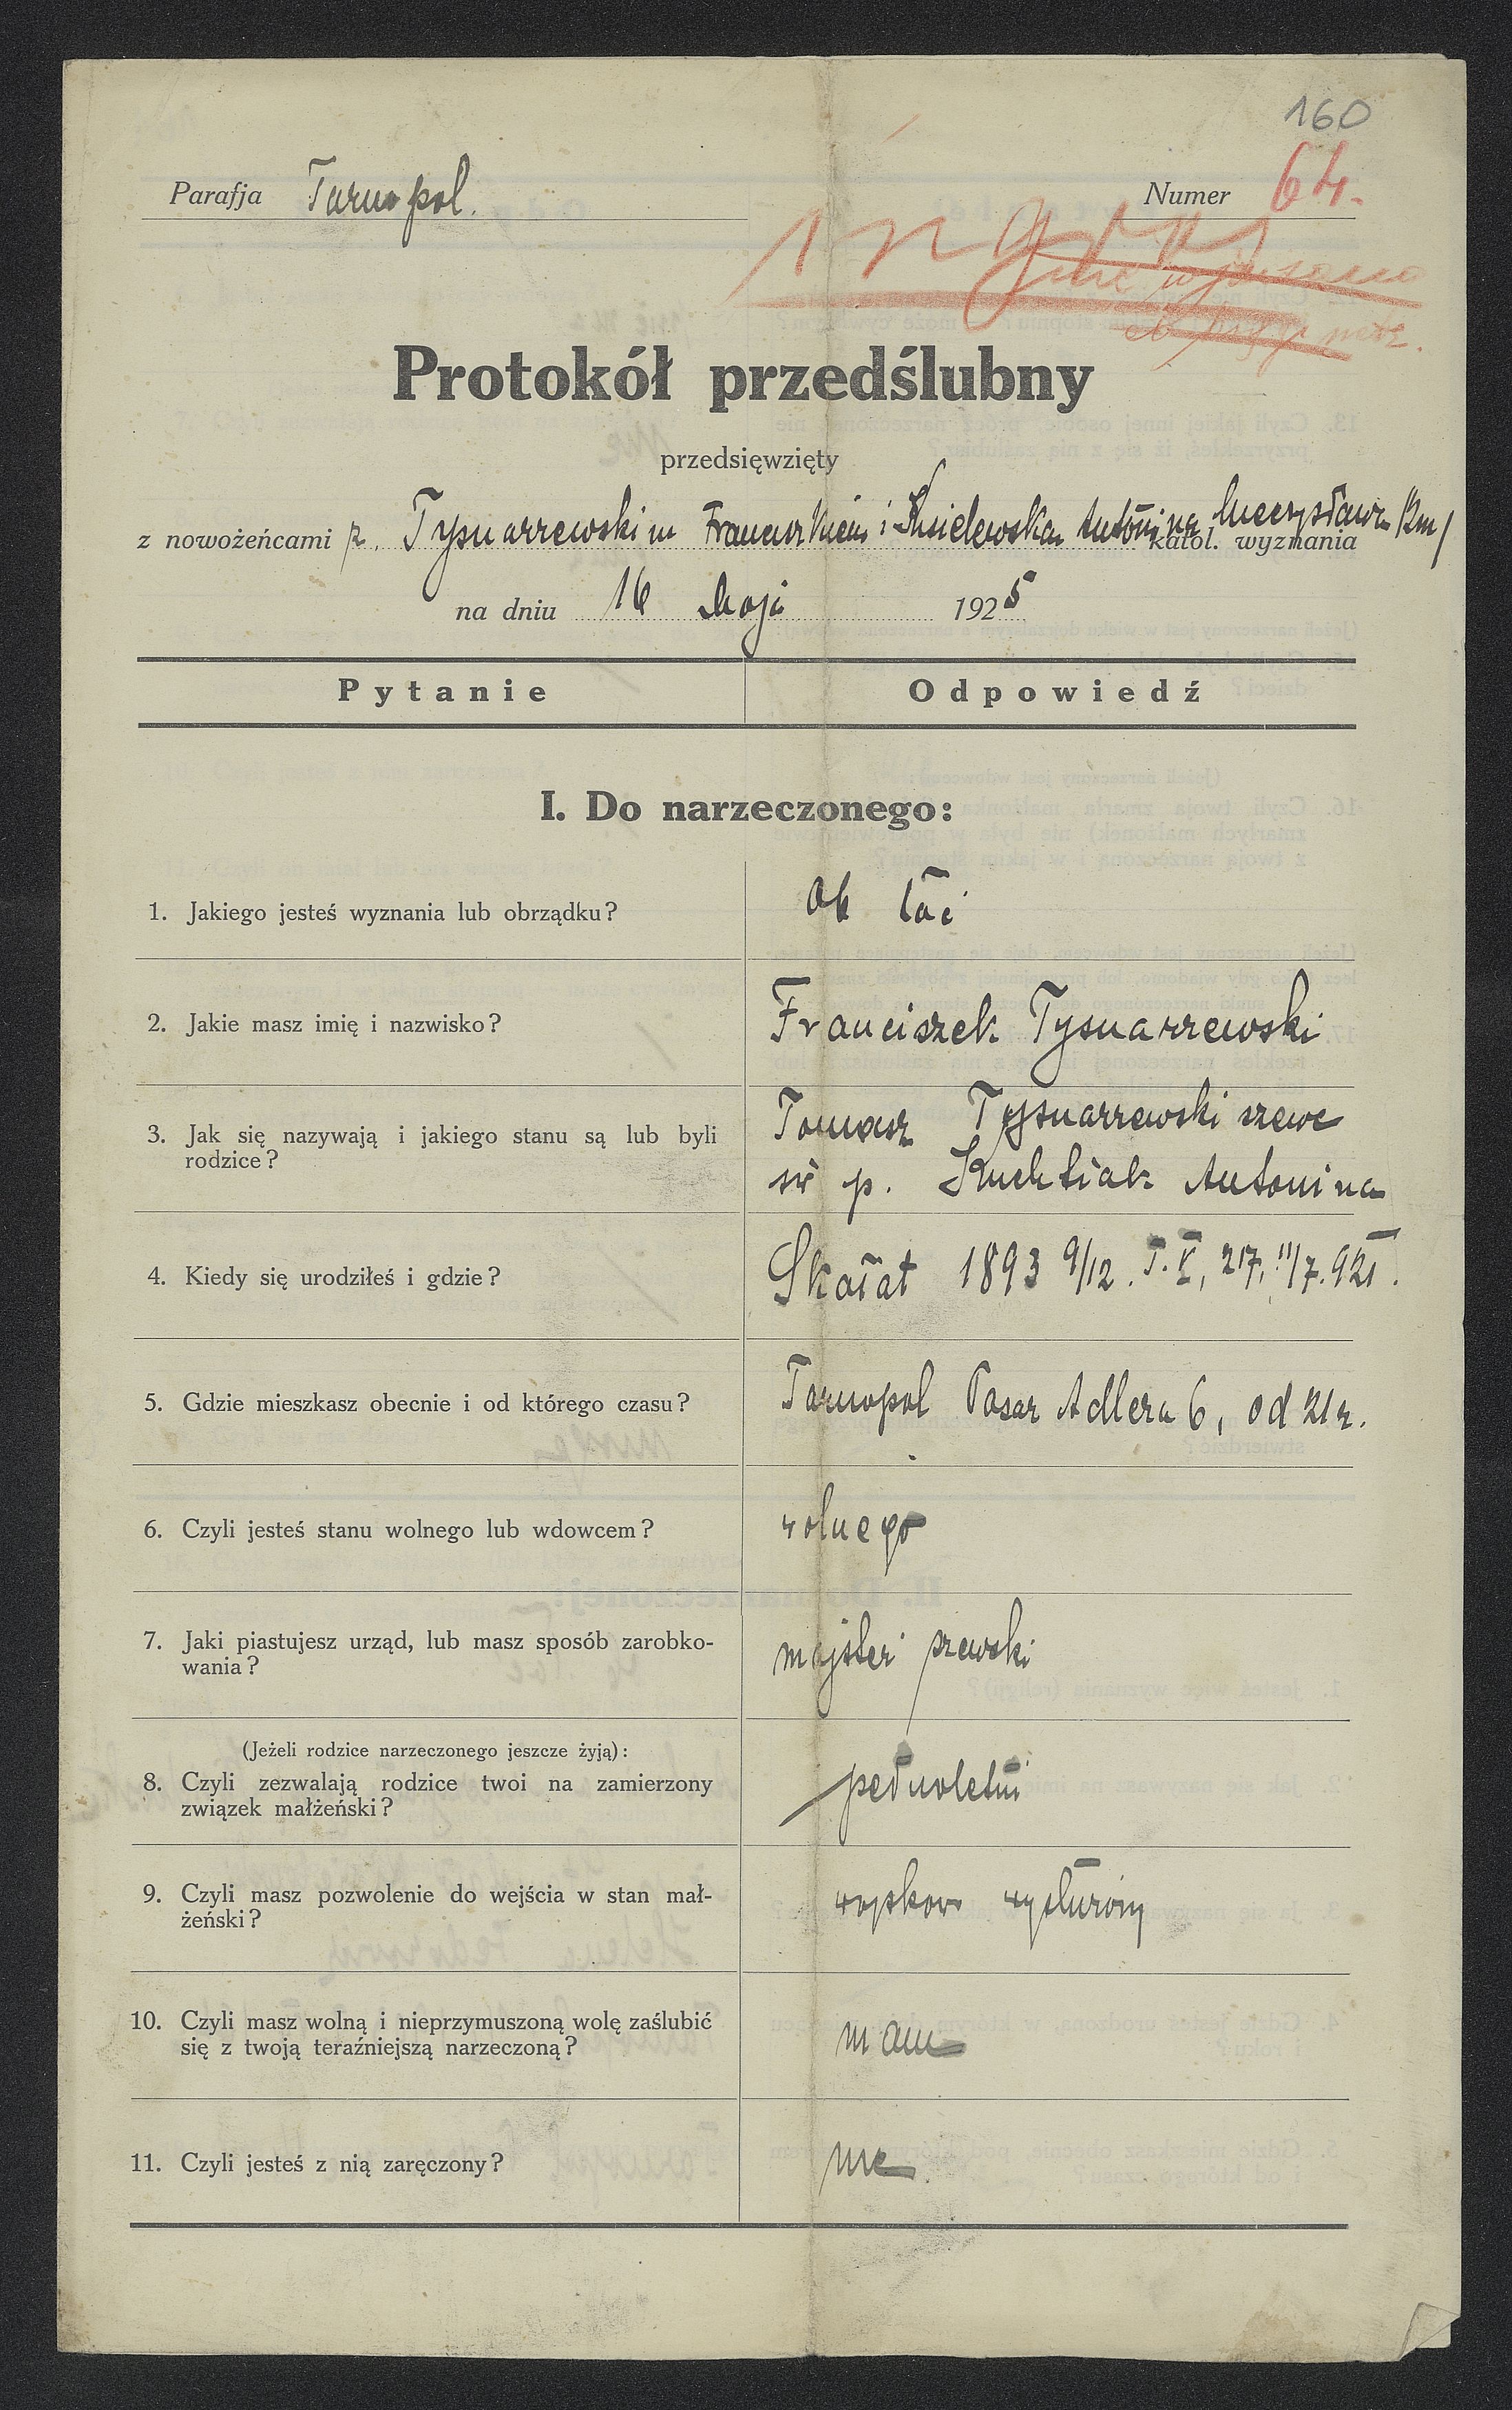 160
Parafja Tarnopol. Numer 64.
Protokół przedślubny
przedsięwzięty
z nowożeńcami p. Tysnarzewskim Franciszkiem i Antonina katol. wyznania
na dniu 16 Maja 1925
Pytanie Odpowiedź
I. Do narzeczonego:
1. Jakiego jesteś wyznania lub obrządku? ob łać
2. Jakie masz imię i nazwisko? Franciszek Tysnarzewski
3. Jak się nazywają i jakiego stanu są lub byli Tomasz Tysnarzewski szewc
rodzice? p. Kuchtiak Antonina
4. Kiedy się urodziłeś i gdzie? Skałat 1893 9/12. T. X, 217, 11/7. 921.
5. Gdzie mieszkasz obecnie i od którego czasu? Tarnopol Pasaż Adlera 6, od 21 r.
6. Czyli jesteś stanu wolnego lub wdowcem? wolnego
7. Jaki piastujesz urząd, lub masz sposób zarobko- majster szewski
wania?
(Jeżeli rodzice narzeczonego jeszcze żyją):
8. Czyli zezwalają rodzice twoi na zamierzony pełnoletni
związek małżeński?
9. Czyli masz pozwolenie do wejścia w stan mał- wojskow wysłużony
żeński?
10. Czyli masz wolną i nieprzymuszoną wolę zaślubić mam
się z twoją teraźniejszą narzeczoną?
11. Czyli jesteś z nią zaręczony? nie